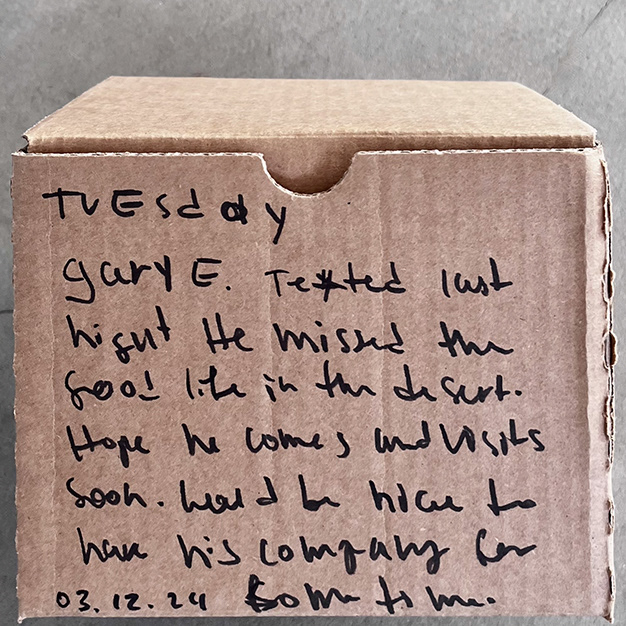 TUESday
gary E. Texted last
night He missed the
good life in the desert.
Hope he comes and visits
soon. would be nice to
have his company for
03.12.24 some time.